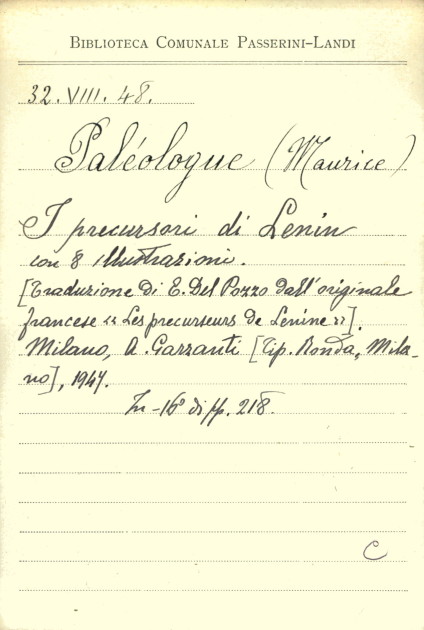 BIBLIOTECA COMUNALE PASSERINI-LANDI
32. VIII. 48.
Paléologue (Maurice)
I precursori di Lenin
con 8 illustrazioni.
[Traduzione di E. Del Pozzo dall'originale
francese « Les precurseurs de Lenine »].
Milano, A. Garzanti [Tip. Ronda, Mila-
no], 1947.
In-16° di pp. 218.
C